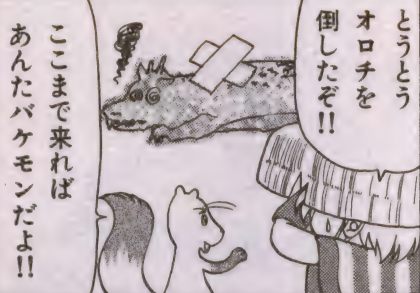 とうとう
オロチを
倒したぞ!!
ここまで来れば
あんたバケモンだよ!!